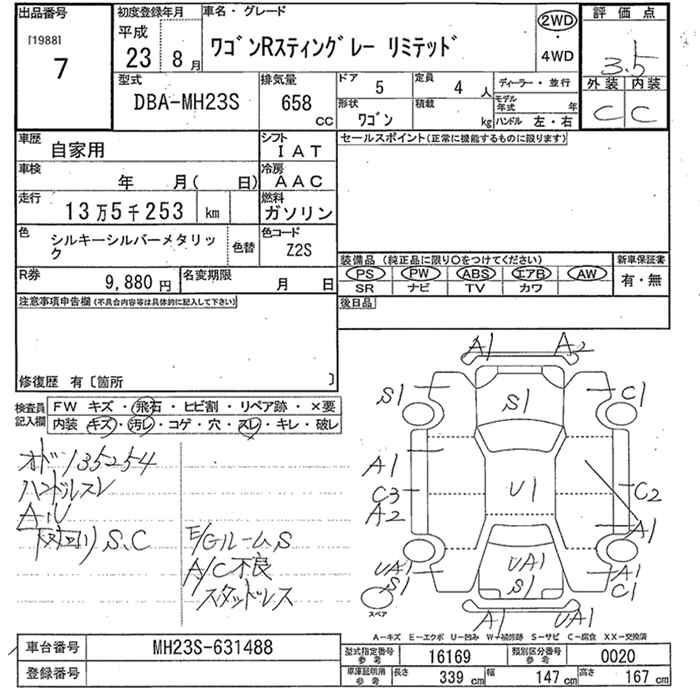 出品番号
[1988]
7
初度登録年月
平成
23 8月
車名・グレード
ワゴンRスティングレー リミテッド
2WD
・
4WD
評価点
3.5
外装 内装
C C
型式
DBA-MH23S
排気量
658
CC
ドア 5
定員 4 人
形状 ワゴン
積載 kg
ディーラー・並行
モデル年式 年
ハンドル 左・右
車歴
自家用
シフト
IAT
車検
年 月( 日)
冷房
AAC
走行
13万5千253 km
燃料
ガソリン
色
シルキーシルバーメタリック
色替
色コード
Z2S
R券
9,880円
名変期限
月 日
セールスポイント(正常に機能するものに限ります)
装備品(純正品に限り○をつけてください)
PS PW ABS エアB AW
SR ナビ TV カワ
新車保証書
有・無
後日品
注意事項申告欄(不具合内容等は具体的に記入して下さい)
修復歴 有〔箇所 〕
検査員記入欄
FW キズ・飛石・ヒビ割・リペア跡・×要
内装 キズ・汚レ・コゲ・穴・スレ・キレ・破レ
オド135254
ハンドルスレ
A.U
S.C
E/GルームS
A/C不良
スタッドレス
A1 A2
S1 S1 C1
A1
C3 U1 C2
A2 A1
UA1 UA1 A1
S1 S1 C1
スペア
A1 UA1
A-キズ E-エクボ U-凹み W-補修跡 S-サビ C-腐食 XX-交換済
車台番号
MH23S-631488
登録番号
型式指定番号
参考
16169
類別区分番号
参考
0020
車庫証明用
参考
長さ 339 cm
幅 147 cm
高さ 167 cm